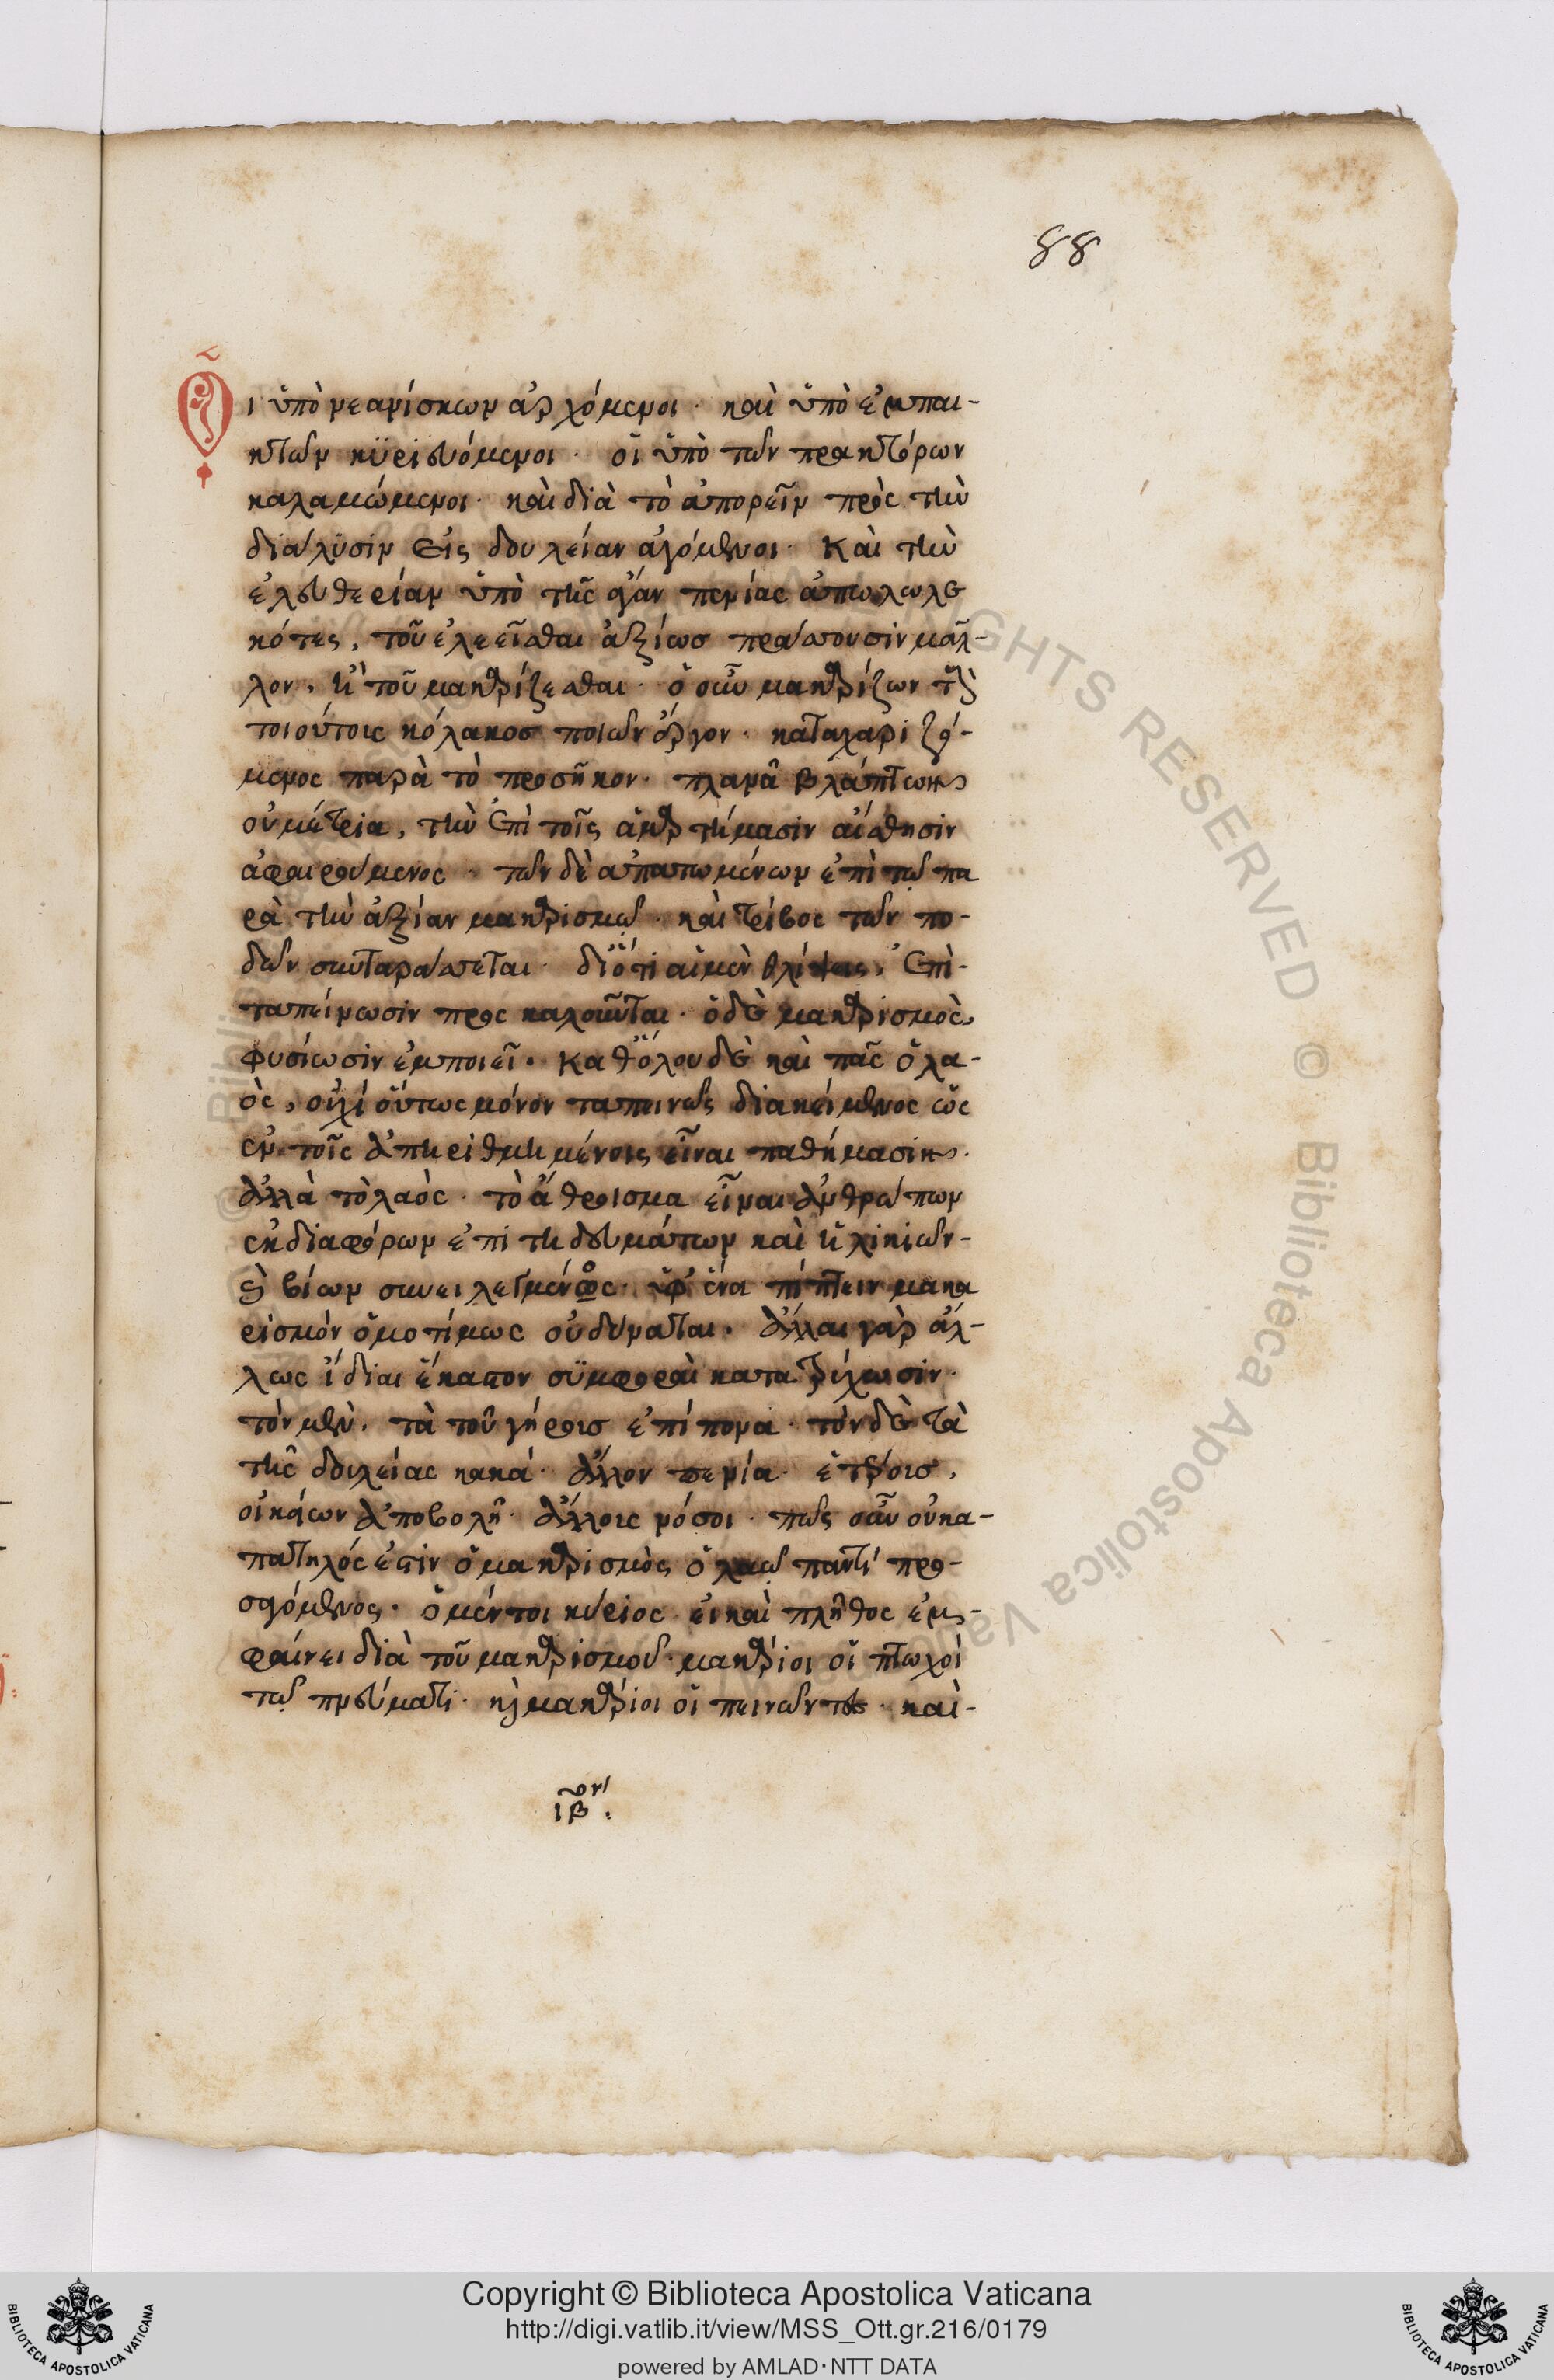 88
Οἱ ὑπὸ νεανίσκων ἀρχόμενοι· καὶ ὑπὸ ἐμπαι-
κτῶν κυριευόμενοι· οἱ ὑπὸ τῶν πρακτόρων
καλαμώμενοι· καὶ διὰ τὸ ἀπορεῖν πρὸς τὴν
διάλυσιν εἰς δουλείαν ἀγόμενοι· Καὶ τὴν
ἐλευθερίαν ὑπὸ τῆς ἄγαν πενίας ἀπολωλε
κότες, τοῦ ἐλεεῖσθαι ἀξίως πράττουσιν μᾶλ-
λον, ἢ τοῦ μακαρίζεσθαι· ὁ οὖν μακαρίζων τοὺς
τοιούτους κόλακος ποιῶν ἔργον· καταχαριζό-
μενος παρὰ τὸ προσῆκον· πλανᾷ βλάπτων
οὐ μέτρια, τὴν ἐπὶ τοῖς ἁμαρτήμασιν αἴσθησιν
ἀφαιρούμενος· τῶν δὲ ἀπατωμένων ἐπὶ τῷ πα
ρὰ τὴν ἀξίαν μακαρισμῷ· καὶ τρίβος τῶν πο-
δῶν συνταράσσεται· διότι αἱ μὲν θλίψεις, ἐπὶ-
ταπείνωσιν προσκαλοῦνται· ὁ δὲ μακαρισμὸς
φυσίωσιν ἐμποιεῖ. Καθόλου δὲ καὶ πᾶς ὁ λα-
ός, οὐχὶ οὕτως μόνον ταπεινῶς διακείμενος ὡς
ἐν τοῖς ἀπηριθμημένοις εἶναι παθήμασιν·
ἀλλὰ τὸ λαὸς· τὸ ἄθροισμα εἶναι ἀνθρώπων
ἐκ διαφόρων ἐπιτηδευμάτων καὶ ἡλικιῶν-
καὶ βίων συνειλεγμένος· ὑφ' ἕνα πίπτειν μακα
ρισμὸν ὁμοτίμως οὐ δύναται. ἄλλαι γὰρ ἄλ-
λως ἴδιαι ἕκαστον συμφοραὶ κατατρύχωσιν·
τὸν μὲν, τὰ τοῦ γήρως ἐπίπονα· τὸν δὲ τὰ
τῆς δουλείας κακά· ἄλλον πενία· ἑτέροις,
οἰκείων ἀποβολῆ· ἄλλοις νόσοι· πῶς οὖν οὐκ ἀ-
πατηλός ἐστιν ὁ μακαρισμὸς ὁ λαῷ παντὶ προ-
σαγόμενος. ὁ μέντοι κύριος ἐν καὶ πλῆθος ἐμ-
φαίνει διὰ τοῦ μακαρισμοῦ· μακάριοι οἱ πτωχοὶ
τῷ πνεύματι· καὶ μακάριοι οἱ πεινῶντες· καὶ-
ιβον
Copyright © Biblioteca Apostolica Vaticana
http://digi.vatlib.it/view/MSS_Ott.gr.216/0179
powered by AMLAD·NTT DATA